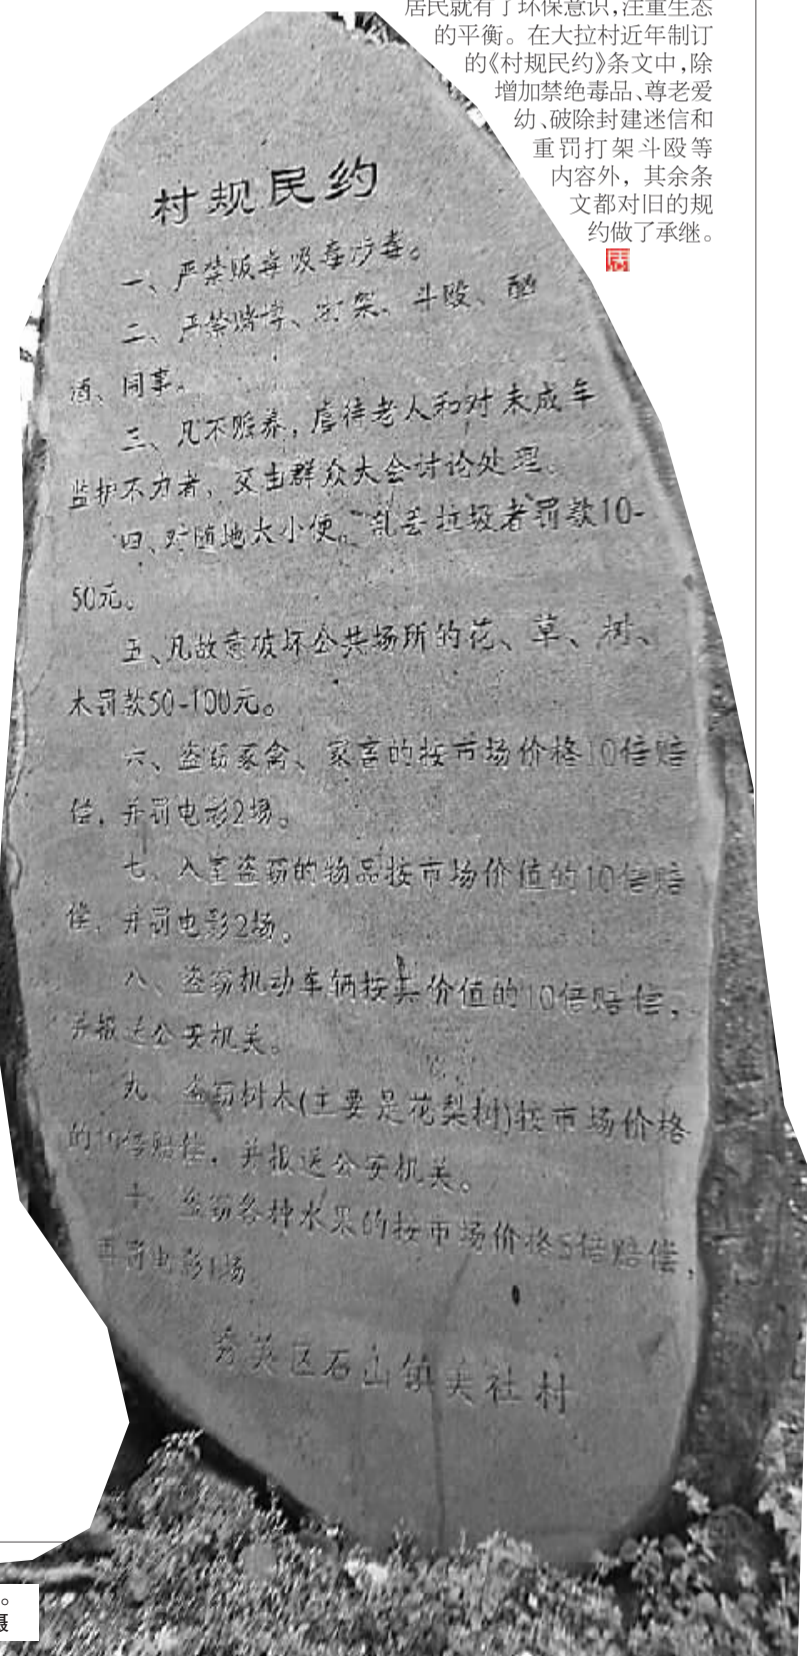 居民就有了环保意识,注重生态
的平衡。在大拉村近年制订
的《村规民约》条文中,除
增加禁绝毒品、尊老爱
幼、破除封建迷信和
重罚打架斗殴等
内容外,其余条
文都对旧的规
约做了承继。
村规民约
一、严禁贩毒吸毒防毒。
二、严禁赌博、打架、斗殴、酗
酒、同事。
三、凡不赡养,虐待老人和对未成年
监护不力者、交由群众大会讨论处理。
四、对随地大小便。乱丢垃圾者罚款10-
50元。
五、凡故意破坏公共场所的花、草、树、
木罚款50-100元。
六、盗窃家禽、家畜的按市场价格10倍赔
偿,并罚电影2场。
七、入室盗窃的物品按市场价值的10倍赔
偿,并罚电影2场。
八、盗窃机动车辆按其价值的10倍赔偿,
并报送公安机关。
九、盗窃树木(主要是花梨树)按市场价格
的10倍赔偿,并报送公安机关。
十、盗窃各种水果的按市场价格5倍赔偿,
再罚电影1场
秀英区石山镇美社村
。